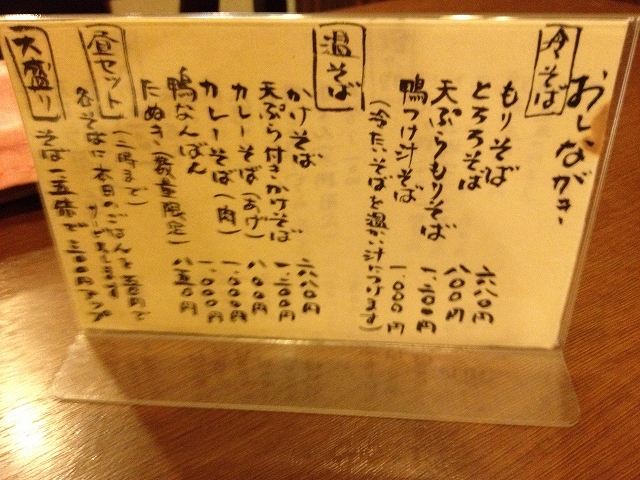 おしながき
冷そば
もりそば 六八〇円
とろろそば 八〇〇円
天ぷらもりそば 一.二〇〇円
鴨つけ汁そば 一.〇〇〇円
(冷たいそばを温かい汁につけます)
温そば
かけそば 六八〇円
天ぷら付きかけそば 一.二〇〇円
カレーそば(あげ) 八〇〇円
カレーそば(肉) 一.〇〇〇円
鴨なんばん 一.〇〇〇円
たぬき(数量限定) 八五〇円
昼セット (二時まで)
各そばに本日のごはんを
サービス
大盛り そば一.五倍で 円アップ